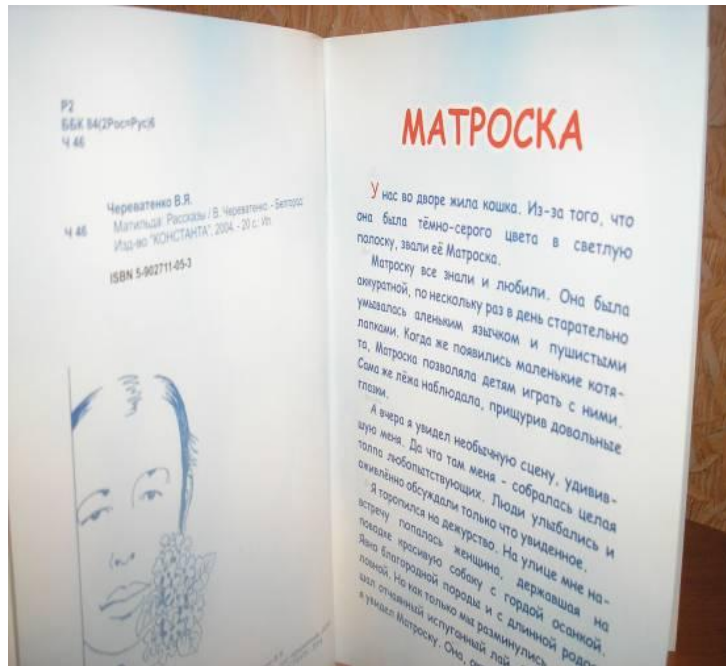 Р2
ББК 84(2Рос=Рус)6
Ч 46
Череватенко В.Я.
Ч 46 Матильда: Рассказы / В. Череватенко. - Белгород:
Изд-во "КОНСТАНТА", 2004. - 20 с.:
ISBN 5-902711-05-3
МАТРОСКА
У нас во дворе жила кошка. Из-за того, что
она была тёмно-серого цвета в светлую
полоску, звали её Матроска.
Матроску все знали и любили. Она была
аккуратной, по нескольку раз в день старательно
умывалась аленьким язычком и пушистыми
лапками. Когда же появились маленькие котя-
та, Матроска позволяла детям играть с ними.
Сама же лёжа наблюдала, прищурив довольные
глазки.
А вчера я увидел необычную сцену, удивив-
шую меня. Да что там меня - собралась целая
толпа любопытствующих. Люди улыбались и
оживлённо обсуждали только что увиденное.
Я торопился на дежурство. На улице мне на-
встречу попалась женщина, державшая на
поводке красивую собаку с гордой осанкой.
Явно благородной породы и с длинной родо-
ловной. Но как только мы разминулись,
отчаянный испуганный лай
я увидел Матроску. Она,